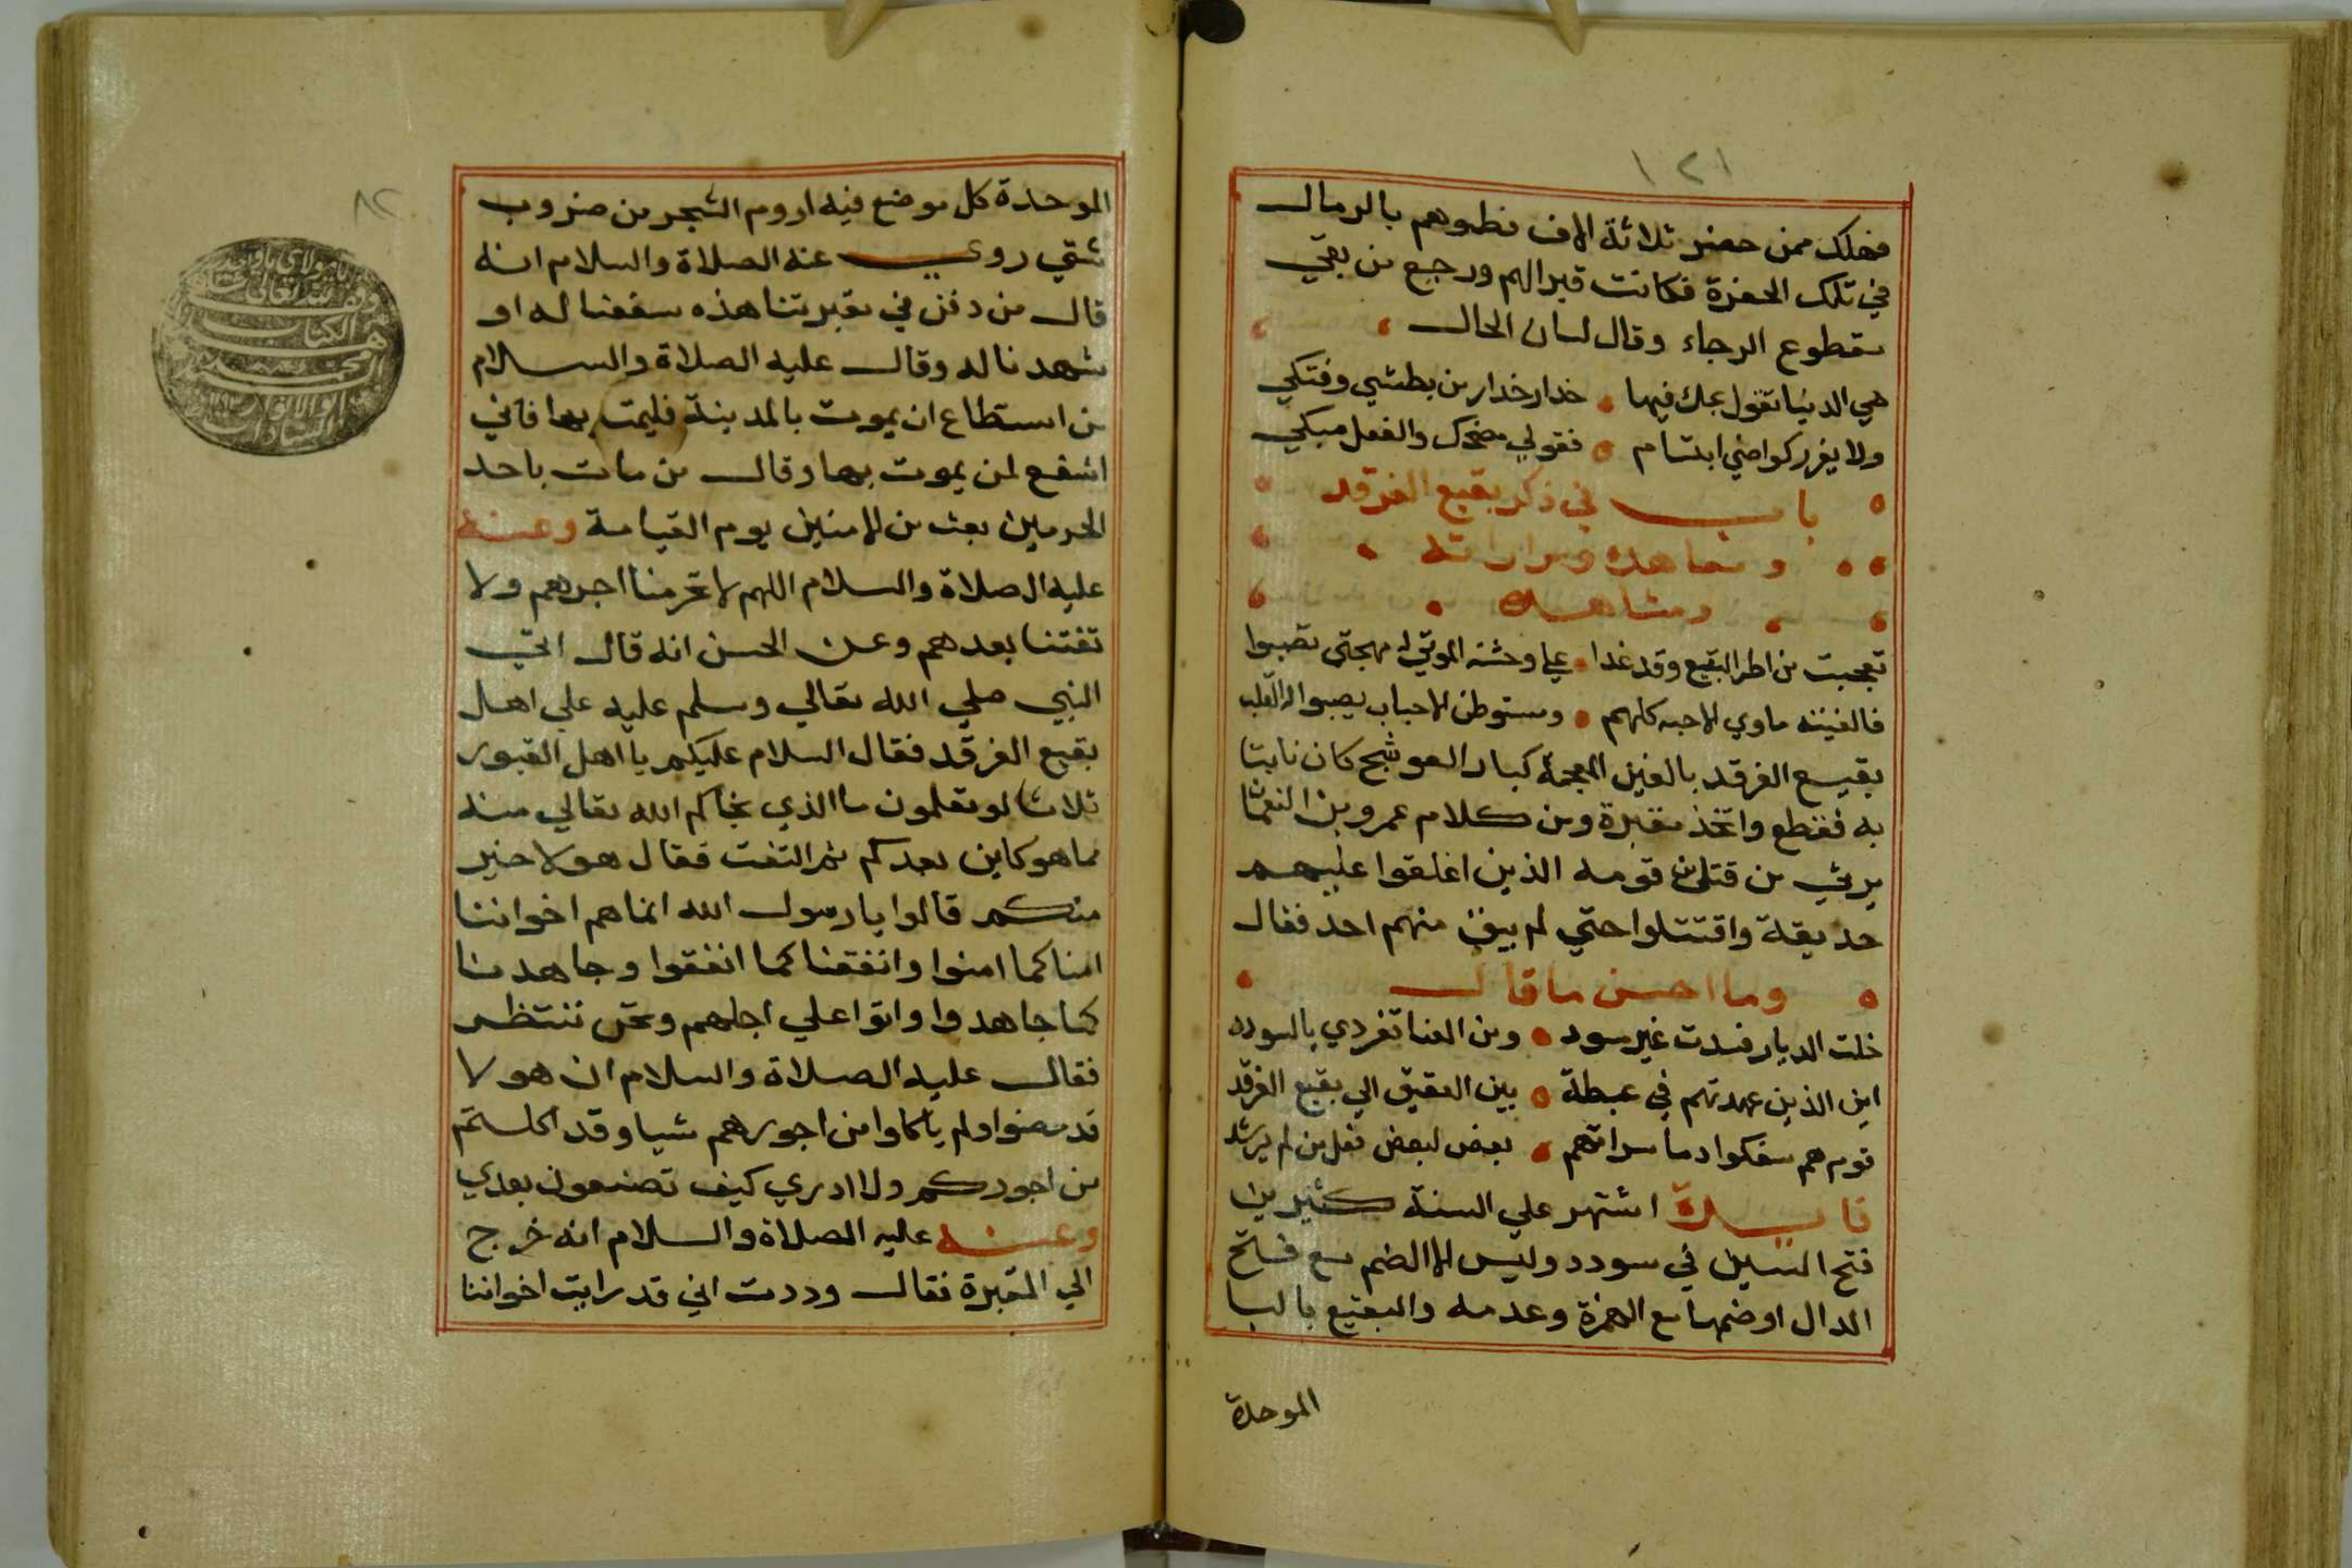 ١٢١
فهلك ممن حضر ثلاثة الاف فطموهم بالرمال
في تلك الحفرة فكانت قبرالهم ورجع من بقي
مقطوع الرجاء وقال لسان الحال
هي الدنيا تقول بملء فيها حذار حذار من بطشي وفتكي
ولا يغرركموا مني ابتسام فقولي مضحك والفعل مبكي
باب في ذكر بقيع الغرقد
و معاهده ومزاراته
ومشاهده
تعجبت من اطر البقيع وقد غدا علي وحشة الموتي له مهجتي تصبوا
فالفيته ماوي الاحبه كلهم ومستوطن الاحباب يصبوا له القلب
بقيع الغرقد بالغين المعجمة كبار العوشج كان نابتا
به فقطع واتخذ مقبرة ومن كلام عمرو بن النعمان
يرثي من قتل من قومه الذين اغلقوا عليهم
حديقة واقتتلوا حتي لم يبق منهم احد فقال
وما احسن ما قال
خلت الديار فسدت غير مسود ومن العنا تفردي بالسودد
اين الذين عهدتهم في غبطة بين العقيق الي بقيع الغرقد
قوم هم سفكوا دما سراتهم بعض لبعض فعل من لم يرشد
فايدة اشتهر علي السنة كثيرين
فتح السين في سودد وليس الا الضم مع فتح
الدال او ضمها مع الهمزة وعدمه والبقيع بالبا
الموحدة
٨٢
الموحدة كل موضع فيه اروم الشجر من ضروب
شتي روي عنه الصلاة والسلام انه
قال من دفن في مقبرتنا هذه شفعنا له او
شهدنا له وقال عليه الصلاة والسلام
من استطاع ان يموت بالمدينة فليمت بها فاني
اشفع لمن يموت بها وقال من مات باحد
الحرمين بعث من الامنين يوم القيامة وعنه
عليه الصلاة والسلام اللهم لا تحرمنا اجرهم ولا
تفتنا بعدهم وعن الحسن انه قال اتي
النبي صلي الله تعالي وسلم عليه علي اهل
بقيع الغرقد فقال السلام عليكم يا اهل القبور
ثلاثا لو تعلمون ما الذي نجاكم الله تعالي منه
مما هو كاين بعدكم ثم التفت فقال هولا خير
منكم قالوا يا رسول الله انما هم اخواننا
امنا كما امنوا وانفقنا كما انفقوا وجاهدنا
كما جاهدوا واتوا علي اجلهم ونحن ننتظر
فقال عليه الصلاة والسلام ان هولا
قد مضوا ولم ياكلوا من اجورهم شيا وقد اكلتم
من اجوركم ولا ادري كيف تصنعون بعدي
وعنه عليه الصلاة والسلام انه خرج
الي المقبرة فقال وددت اني قد رايت اخواننا